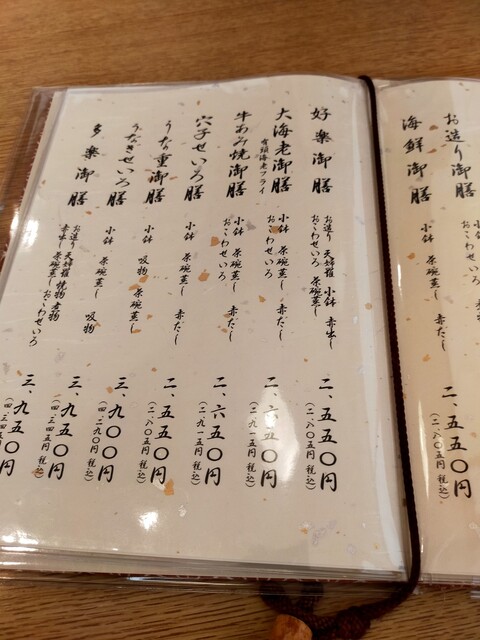 お造り御膳
海鮮御膳
小鉢 茶碗蒸し 赤だし
二、五五〇円
(二、八〇五円 税込)
好楽御膳
お造り 天婦羅 小鉢 赤出し
おこわせいろ 茶碗蒸し
二、五五〇円
(二、八〇五円 税込)
大海老御膳
有頭海老フライ
小鉢 茶碗蒸し 赤だし
おこわせいろ
二、六五〇円
(二、九一五円 税込)
牛あみ焼御膳
小鉢 茶碗蒸し 赤だし
おこわせいろ
二、六五〇円
(二、九一五円 税込)
穴子せいろ膳
小鉢 茶碗蒸し 赤だし
二、五五〇円
(二、八〇五円 税込)
うな重御膳
小鉢 吸物 茶碗蒸し
三、九〇〇円
(四、二九〇円 税込)
うなぎせいろ膳
小鉢 茶碗蒸し 吸物
三、九五〇円
(四、三四五円 税込)
多楽御膳
お造り 天婦羅 焼物 煮物
赤出し 茶碗蒸し おこわせいろ
三、九五〇円
(四、三四五円